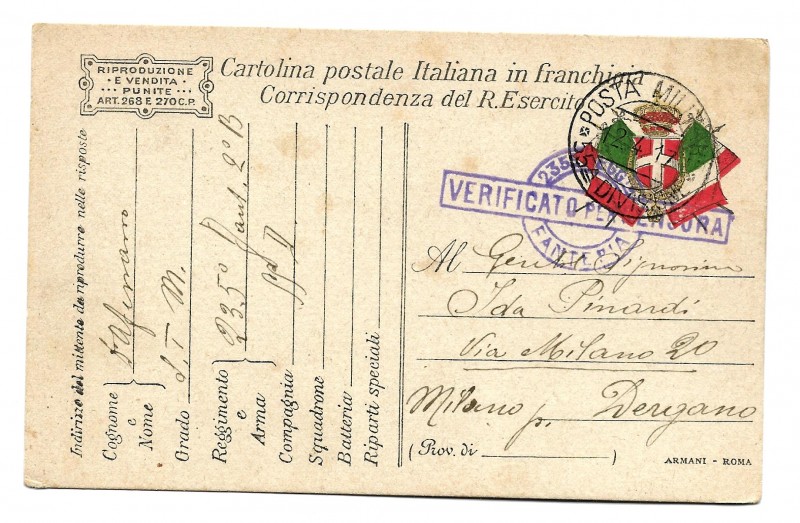 RIPRODUZIONE
E VENDITA
··· PUNITE ···
ART. 268 E 270 C.P.
Cartolina postale Italiana in franchigia
Corrispondenza del R. Esercito
POSTA MILITARE
35ª DIVISIONE
235
FANTERIA
VERIFICATO PER CENSURA
Al Gentil Signorina
Ida Pinardi
Via Milano 20
Milano p. Dergano
(Prov. di )
ARMANI - ROMA
Indirizzo del mittente da riprodurre nelle risposte
Cognome
e
Nome
Grado S. T. M.
Reggimento
e
Arma
235° Fant. 2° B
Compagnia
Squadrone
Batteria
Riparti speciali